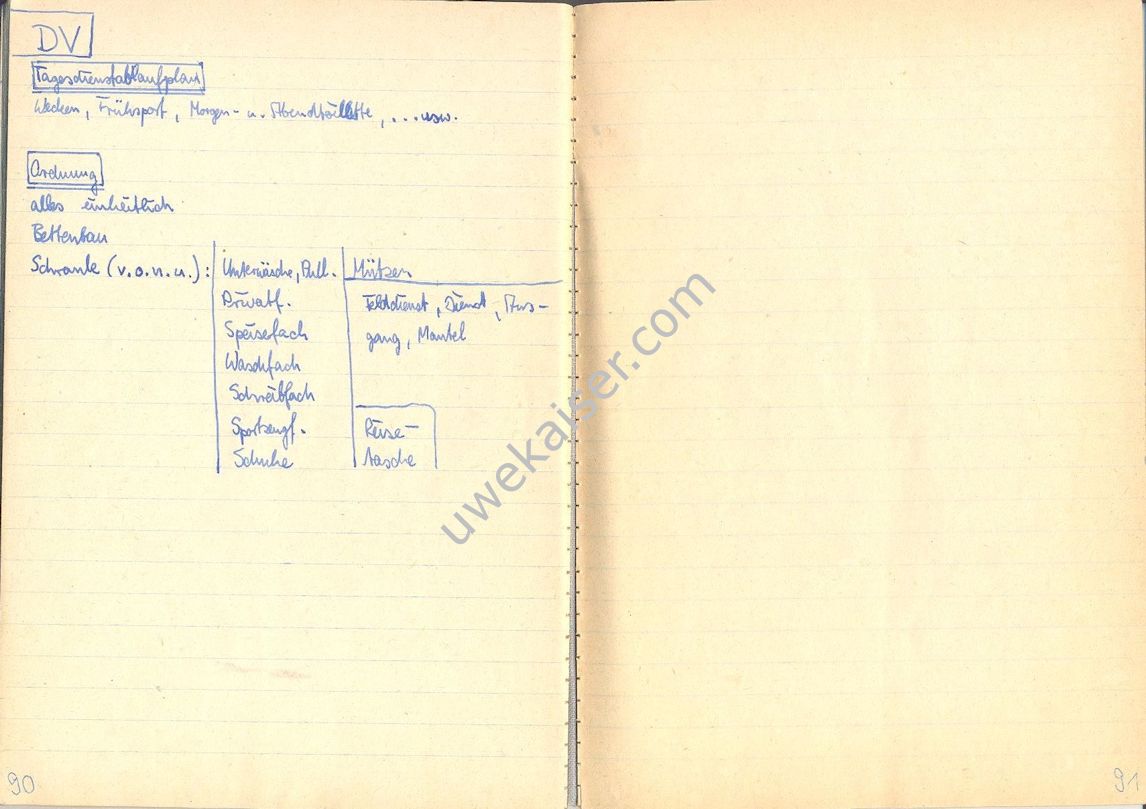 DV
Tagesdienstablaufplan
Wecken, Frühsport, Morgen- u. Abendtoilette, ... usw.
Ordnung
alles einheitlich
Bettenbau
Schränke (v.o.n.u.): Unterwäsche, Pull. Mützen
Privatf. Felddienst, Dienst, Aus-
Speisefach gang, Mantel
Waschfach
Schreibfach
Sportzeugf. Reise-
Schuhe tasche
uwekaiser.com
90
91